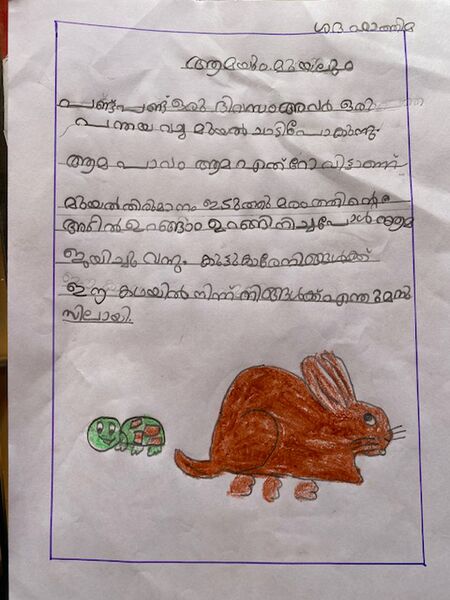 ശദ ഫാത്തിമ
ആമയും മുയലും
പണ്ട് പണ്ട് ഒരു ദിവസം അവർ ഒരു
പന്തയ വച്ച മുയൽ ചാടിപോകുന്നു
ആമ പാവം ആമ എത്റോ വിട്ടാണ്
മുയൽ തിരുമാനം ഇടുത്തു മരം തതിന്റെ
അടിൽ ഉറങ്ങാം ഉറങ്ങി നിച്ചപോൾ ആമ
ജയിച്ചു വന്നു. കുട്ടുകാരേ നിങ്ങൾക്ക്
ഈ കഥയിൽ നിന്ന് നിങ്ങൾക്ക് എന്തു മന
സിലായി.